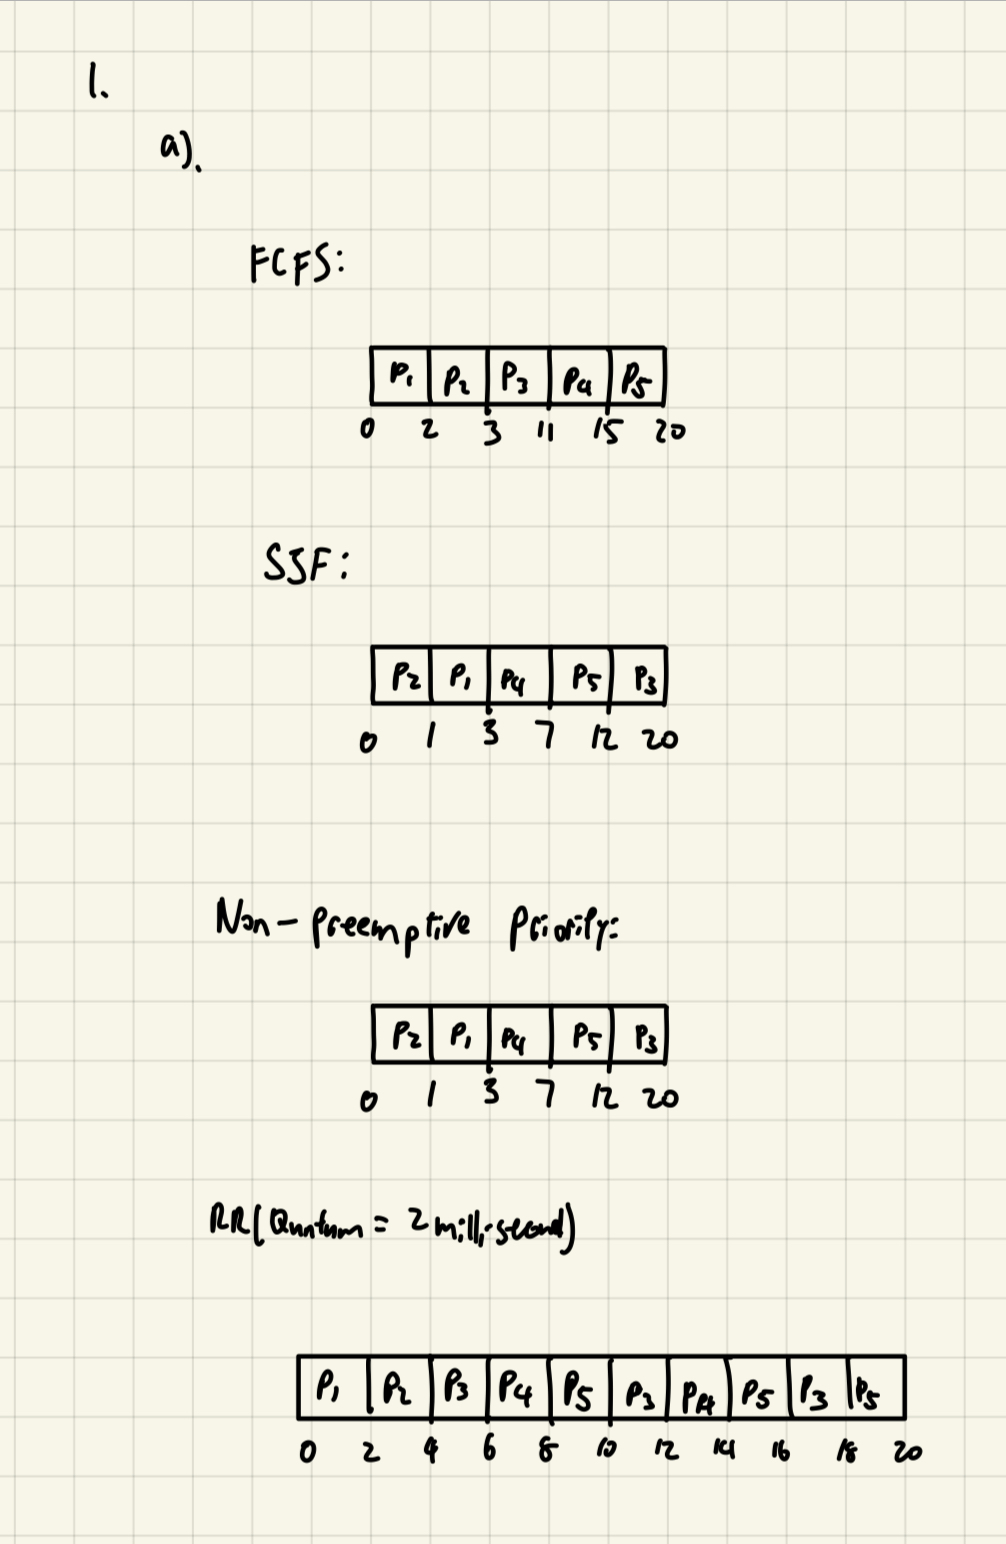 1.
a).
FCFS:
P1 P2 P3 P4 P5
0 2 3 11 15 20
SJF:
P2 P1 P4 P5 P3
0 1 3 7 12 20
Non-preemptive Priority:
P2 P1 P4 P5 P3
0 1 3 7 12 20
RR(Quntum = 2 millisecond)
P1 P2 P3 P4 P5 P3 P4 P5 P3 P5
0 2 4 6 8 10 12 14 16 18 20